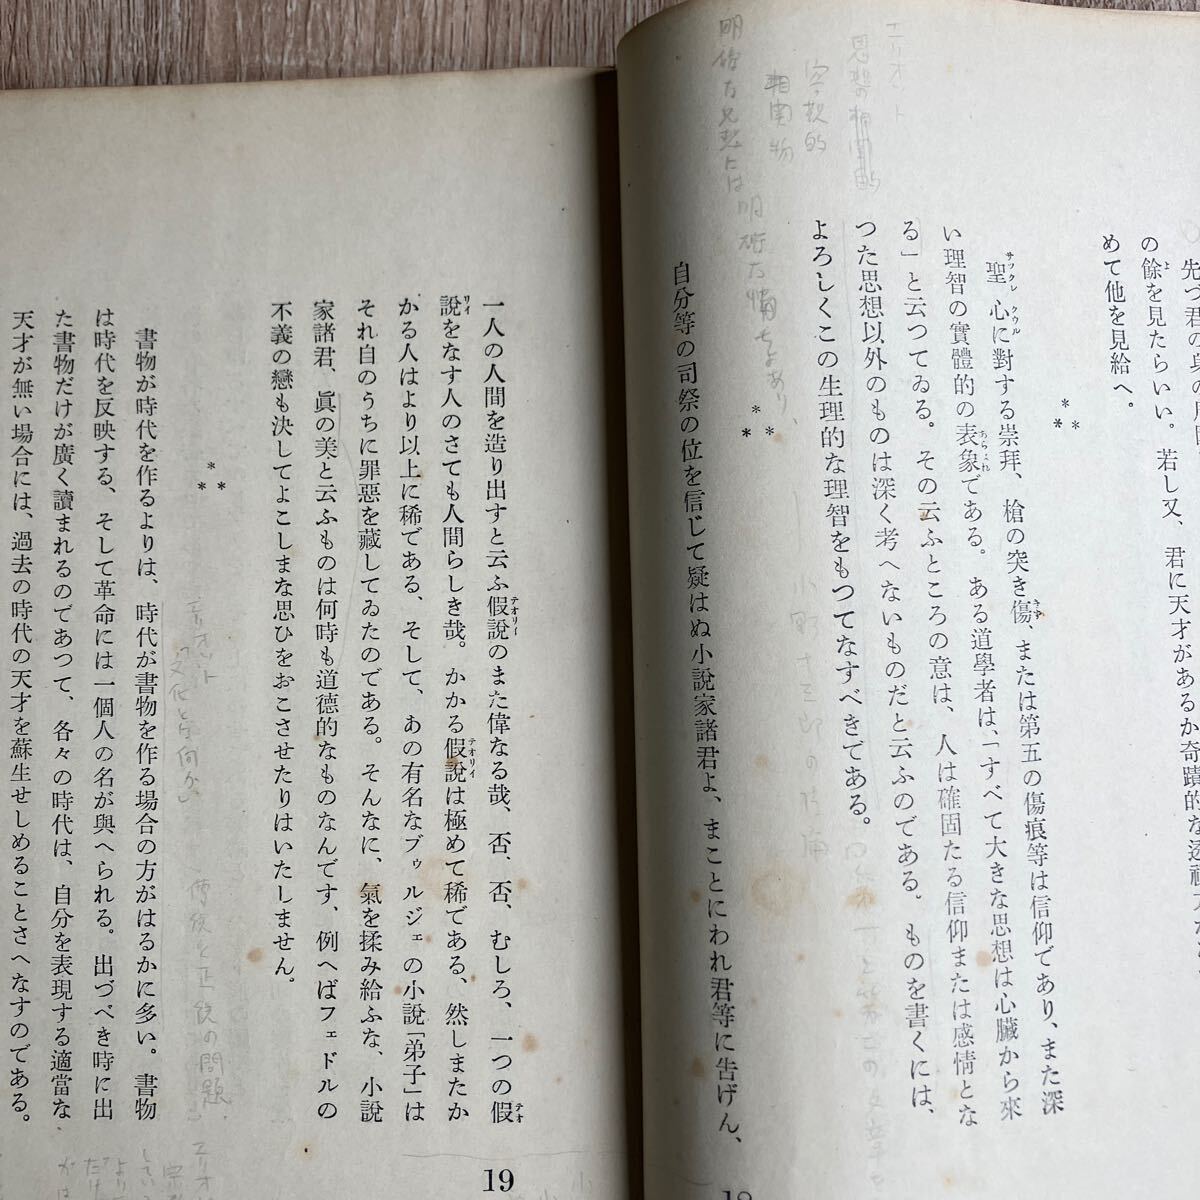 先づ君の身の周
の餘を見たらいい。若し又、君に天才があるか奇蹟的な透視力な
めて他を見給へ。
***
聖心に對する崇拜、槍の突き傷、または第五の傷痕等は信仰であり、また深
サックレ クウル
い理智の實體的の表象である。ある道學者は、「すべて大きな思想は心臟から來
あらはれ
る」と云つてゐる。その云ふところの意は、人は確固たる信仰または感情とな
つた思想以外のものは深く考へないものだと云ふのである。ものを書くには、
よろしくこの生理的な理智をもつてなすべきである。
***
自分等の司祭の位を信じて疑はぬ小說家諸君よ、まことにわれ君等に告げん、
エリオット
思想の相関的
客観的
相関物
18
一人の人間を造り出すと云ふ假說のまた偉なる哉、否、否、むしろ、一つの假
テオリイ テオ
說をなす人のさても人間らしき哉。かかる假說は極めて稀である、然しまたか
リイ テオリイ
かる人はより以上に稀である、そして、あの有名なブゥルジェの小說「弟子」は
それ自のうちに罪惡を藏してゐたのである。そんなに、氣を揉み給ふな、小說
家諸君、眞の美と云ふものは何時も道德的なものなんです、例へばフェドルの
不義の戀も決してよこしまな思ひをおこさせたりはいたしません。
***
書物が時代を作るよりは、時代が書物を作る場合の方がはるかに多い。書物
は時代を反映する、そして革命には一個人の名が與へられる。出づべき時に出
た書物だけが廣く讀まれるのであつて、各々の時代は、自分を表現する適當な
天才が無い場合には、過去の時代の天才を蘇生せしめることさへなすのである。
エリオット
「文化とは何か」
傳統と正統の問題
19